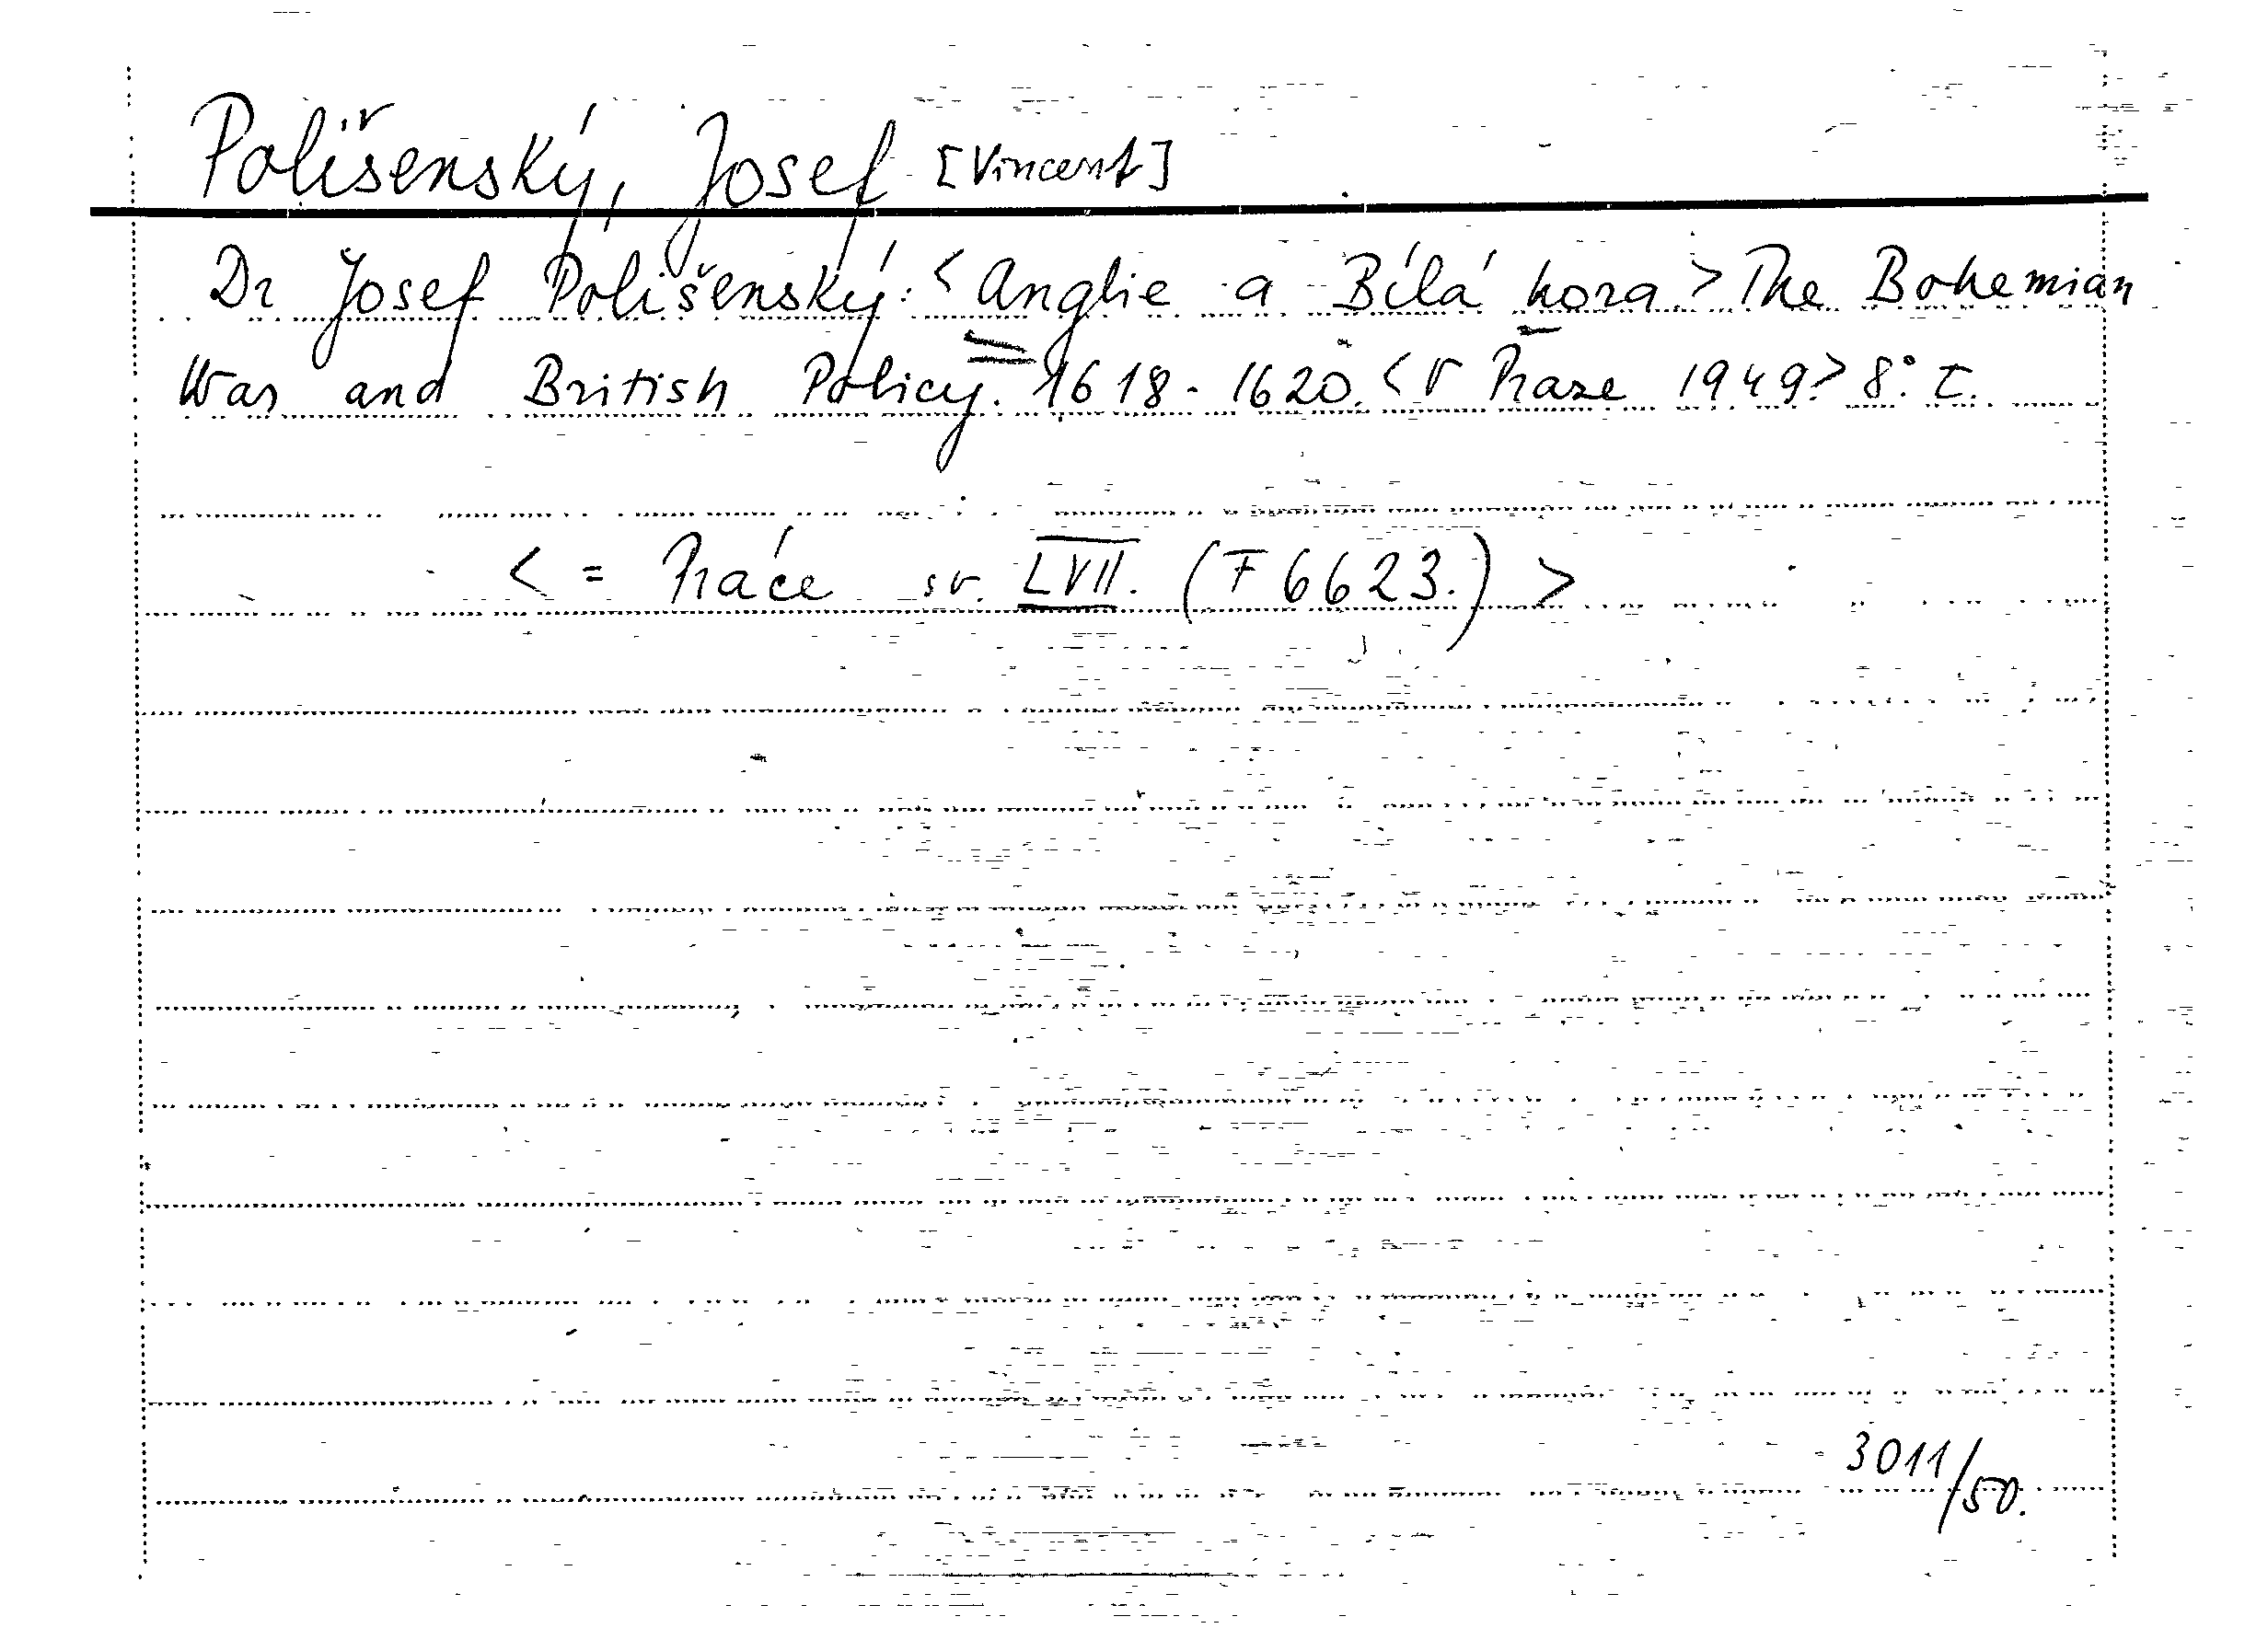 Polišenský, Josef [Vincent]
Dr Josef Polišenský: <Anglie a Bílá hora> The Bohemian
War and British Policy. 1618-1620. <V Praze 1949> 8° τ.
< = Práce sv. LVII. (F 6623.) >
3011/50.